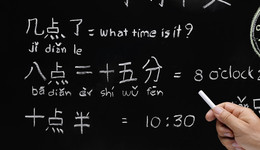 几点了 = what time is it?
jǐ diǎn le
八点二十五分 = 8 o'clock
bā diǎn èr shí wǔ fēn
十点半 = 10:30